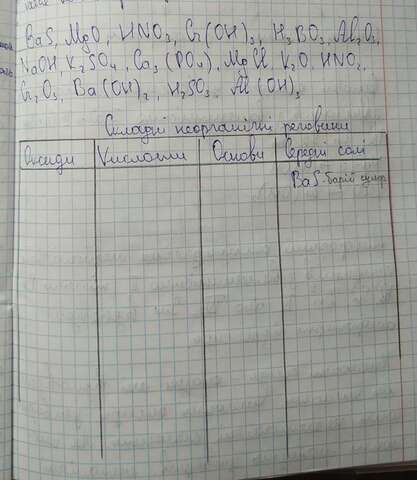 BaS, MgO, HNO₃, Cr(OH)₃, H₃BO₃, Al₂O₃,
NaOH, K₂SO₄, Ca₃(PO₄), MgCl, K₂O, HNO₂,
Cr₂O₃, Ba(OH)₂, H₂SO₃, Al(OH)₃
Складні неорганічні речовини
Оксиди Кислоти Основи Середні солі
BaS-барій сульф